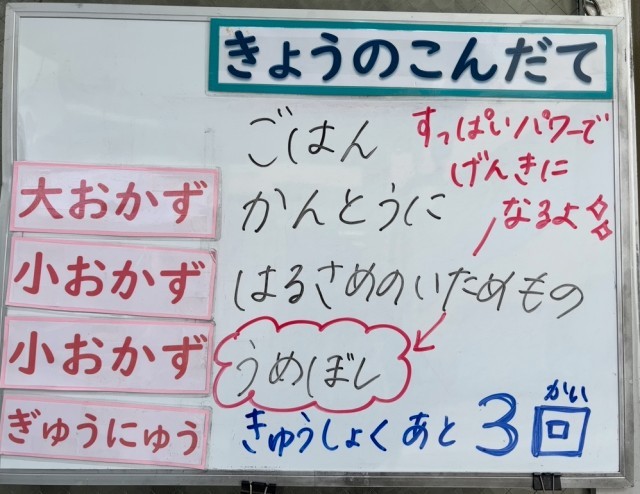 きょうのこんだて
ごはん
すっぱいパワーで
げんきに
なるよ
大おかず
かんとうに
小おかず
はるさめのいためもの
小おかず
うめぼし
ぎゅうにゅう
きゅうしょく あと 3回
かい